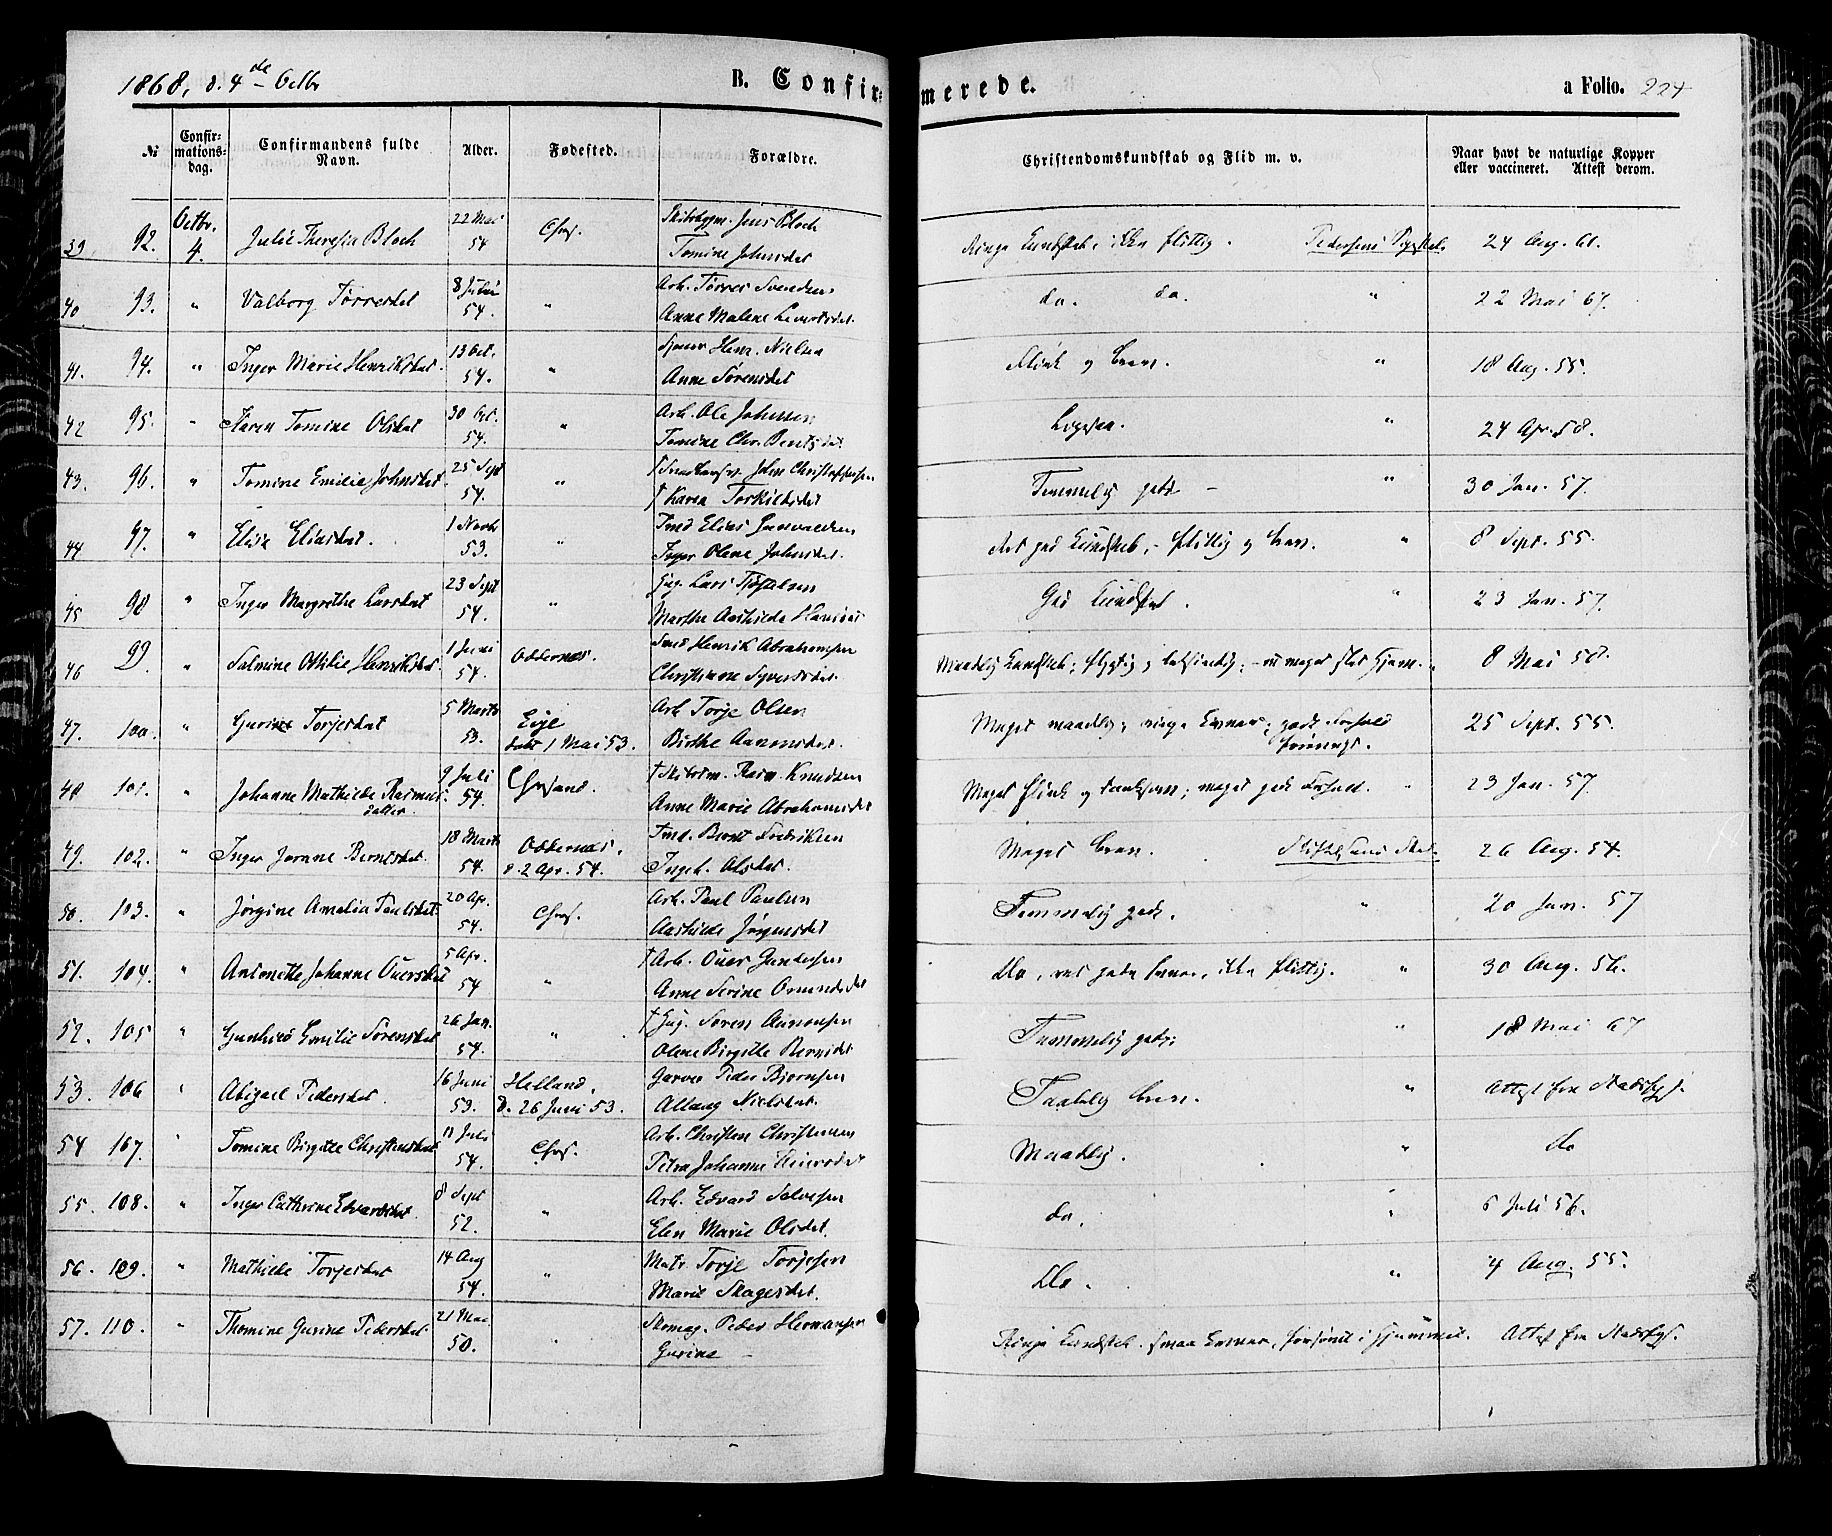 1868, d. 4de Octbr
B. Confir-
merede.
a Folio. 224
№
Confir-
mations-
dag.
Confirmandens fulde
Navn.
Alder.
Fødested.
Forældre.
Christendomskundskab og Flid m. v.
Naar havt de naturlige Kopper
eller vaccineret. Attest derom.
39. 92. Octbr. 4. Julie Theresia Bloch 22 Mai 54 Chrs. Jens Bloch
Tomine Johnsdat
Ringe Kundskab, ikke flittig. 24 Aug. 61.
40. 93. " Valborg Tørresdat 8 Juli 54. " Arb. Tørres Svendsen
Anne Malene
do. do. " 22 Mai 67.
41. 94. " Inger Marie Henriksdat. 13 Oct. 54. " Henr. Nielsen
Anne Sørensdat
Flink og brav. " 18 Aug. 55.
42 95. " Karen Tomine Olsdat 30 Oct. 54. " Arb. Ole Johnsen
Tomine Chr. Bentsdat
Ligesaa. " 24 Apr. 58.
43. 96. " Tomine Emilie Johnsdat. 25 Sept 54. " † John Christophersen
† Karen Torkildsdat
Temmelig godt - " 30 Jan. 57.
44 97. " Elise Eliasdat. 1 Novbr 53. " Smed Elias Gunvaldsen
Inger Olene Johnsdat.
Ret god Kundskab, - flittig og brav. " 8 Sept. 55.
45 98. " Inger Margrethe Larsdat 23 Sept 54. " Lars
Marthe Aashilde Hansdat
God Kundskab. " 23 Jan. 57.
46 99. " Salmine Ottilie Henriksdat 1 Juni 54. Oddernes. Smed Henrik Abrahamsen
Christiane Syvertsdat.
Maadelig Kundskab; flygtig og letsindig; " 8 Mai 58.
47. 100. " Gurine Torjesdat 5 Marts 53. Evje
døbt 1 Mai 53. Arb Torje Olsen
Birthe Aanonsdat.
Meget maadelig; ringe Evner; godt Forhold
25 Sept. 55.
48 101. " Johanne Mathilde Rasmus-
datter. 9 Juli 54. Chrsand. † Rasm. Knudsen
Anne Marie Abrahamsdat
Meget flink og tænksom; meget godt Forhold. " 23 Jan. 57.
49. 102. " Inger Jorane Berntsdat. 18 Marts 54. Oddernes.
d. 2 Apr. 54. Smd. Bernt Fredriksen
Ingeb. Olsdat.
Meget brav. 26 Aug. 54.
50. 103. " Jørgine Amalia Paulsdat 20 Ap. 54. Chrs. Arb. Paul Paulsen
Aashilde Jørgensdat
Temmelig godt. " 20 Jan. 57
51. 104. " Antonette Johanne Ouersdat 5 Apr. 54 " † Arb. Ouer Gundersen
Anne Serine Osmundsdat
Do, ret gode Evner, ikke flittig. " 30 Aug. 56.
52. 105 " Gunhild Emilie Sørensdat 26 Jan. 54. " † Søren Aanonsen
Olene Birgitte Berntsdat
Temmelig godt. " 18 Mai 67
53. 106 " Abigael Pedersdat. 16 Juni 53. Helland.
d. 26 Juni 53. Garver Peder Bjørnsen
Aslaug Nielsdat.
Taalelig brav. " Attest fra Stadsfys.
54 107. " Tomine Birgitte Christensdat 11 Juli 54. Chrs. Arb. Christen Christensen
Petra Johanne
Maadelig. " do
55. 108. " Inger Cathrine Edvardsdat. 8 Sept 52. " Arb. Edvard Salvesen
Elen Marie Olsdat.
do. " 6 Juli 56.
56. 109. " Mathilde Torjesdat 14 Aug 54. " Matr. Torje Torjesen
Marie Skagesdat.
Do. " 4 Aug. 55.
57. 110. " Thomine Gurine Pedersdat. 21 Mai 50. " Skomag. Peder Hermansen
Gurine -
Ringe Kundskab. smaa Evner, forsømt i Hjemmet. Attest fra Stadsfys.